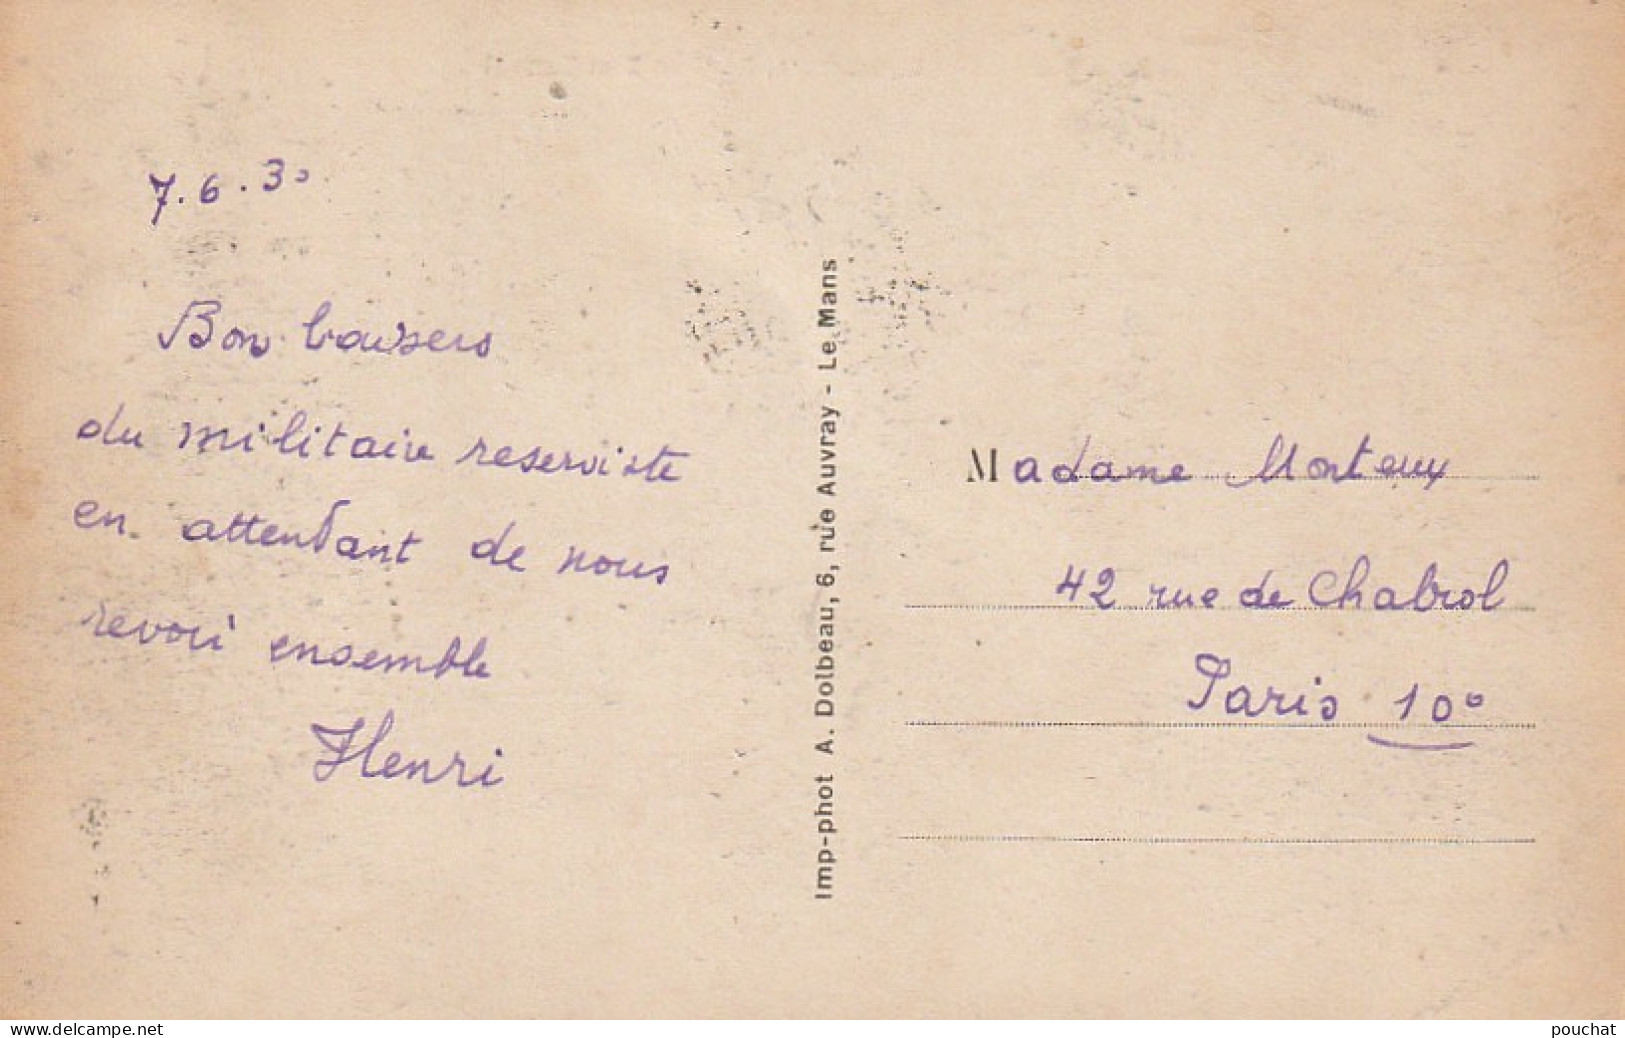 7.6.30
Bon baisers
du militaire reserviste
en attendant de nous
revoir ensemble
Henri
Imp-phot A. Dolbeau, 6, rue Auvray - Le Mans
Madame Monteux
42 rue de Chabrol
Paris 10°
www.delcampe.net
pouchat